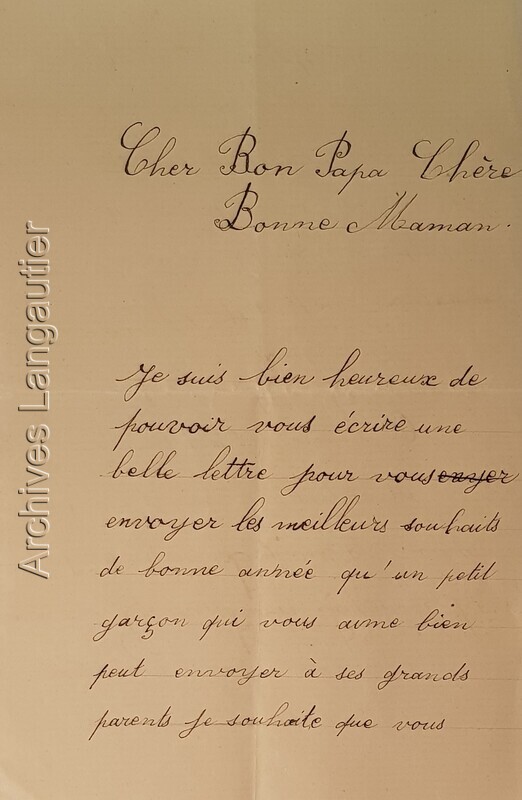 Cher Bon Papa Chère
Bonne Maman.
Je suis bien heureux de
pouvoir vous écrire une
belle lettre pour vous enyer
envoyer les meilleurs souhaits
de bonne année qu'un petit
garçon qui vous aime bien
peut envoyer à ses grands
parents je souhaite que vous
Archives Langautier